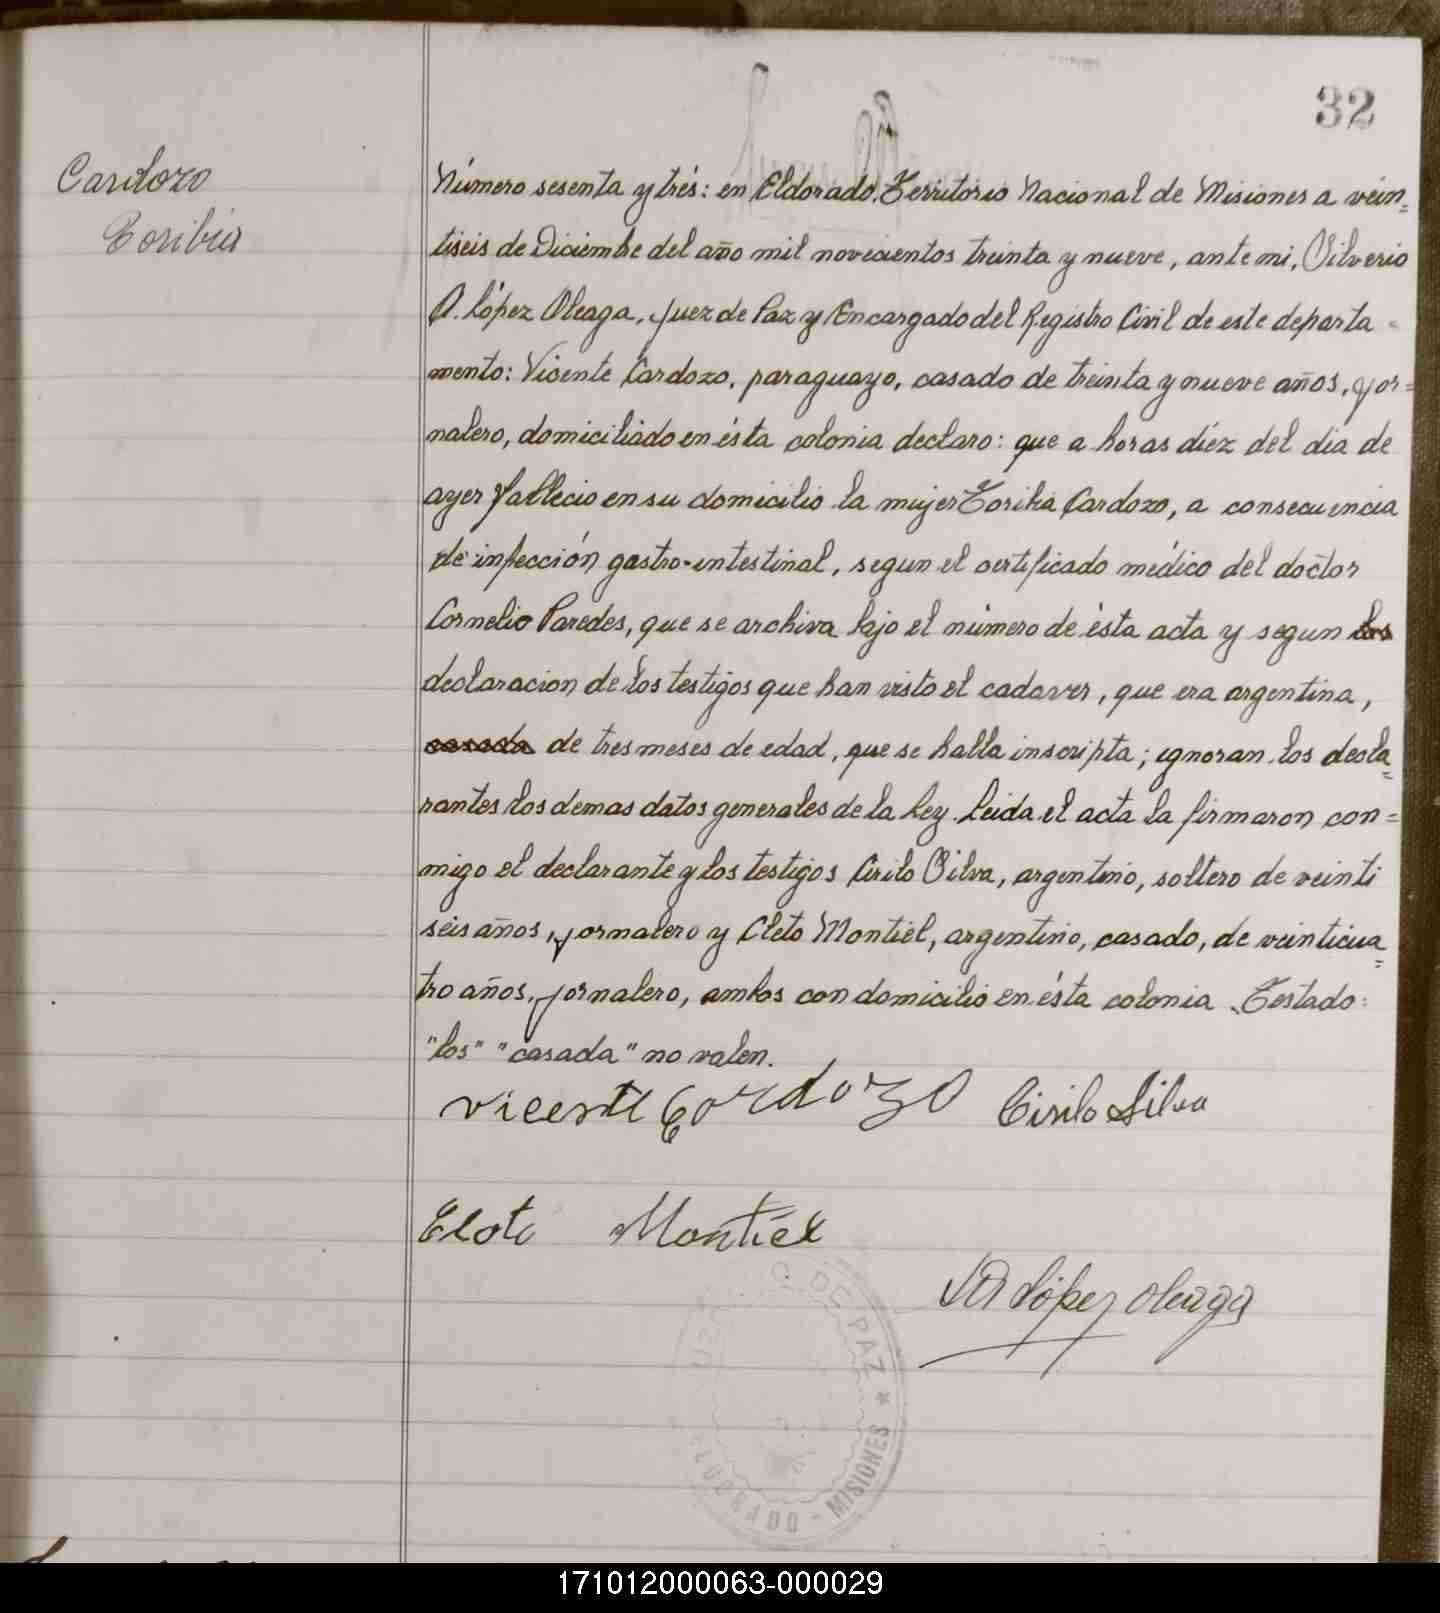 32
Cardozo
Toribia
Número sesenta y trés: en Eldorado, Territorio Nacional de Misiones a vein=
tiseis de Diciembre del año mil novecientos treinta y nueve, ante mi, Silverio
A. López Oleaga, Juez de Paz y Encargado del Registro Civil de este departa-
mento: Vicente Cardozo, paraguayo, casado de treinta y nueve años, jor=
nalero, domiciliado en ésta colonia declaro: que a horas diéz del dia de
ayer fallecio en su domicilio la mujer Toribia Cardozo, a consecuencia
de infección gastro-intestinal, segun el certificado médico del doctor
Cornelio Paredes, que se archiva bajo el número de ésta acta y segun los
declaracion de los testigos que han visto el cadaver, que era argentina,
casada de tres meses de edad, que se halla inscripta; ignoran los decla=
rantes los demas datos generales de la Ley. Leida el acta la firmaron con=
migo el declarante y los testigos Cirilo Silva, argentino, soltero de veinti
seis años, jornalero y Cleto Montiel, argentino, casado, de veinticua=
tro años, jornalero, ambos con domicilio en ésta colonia. Testado:
"los" "casada" no valen.
Vicente Cordozo Cirilo Silva
Cleto Montiel
SA López Oleaga
C. DE PAZ ★
ELDORADO - MISIONES
171012000063-000029